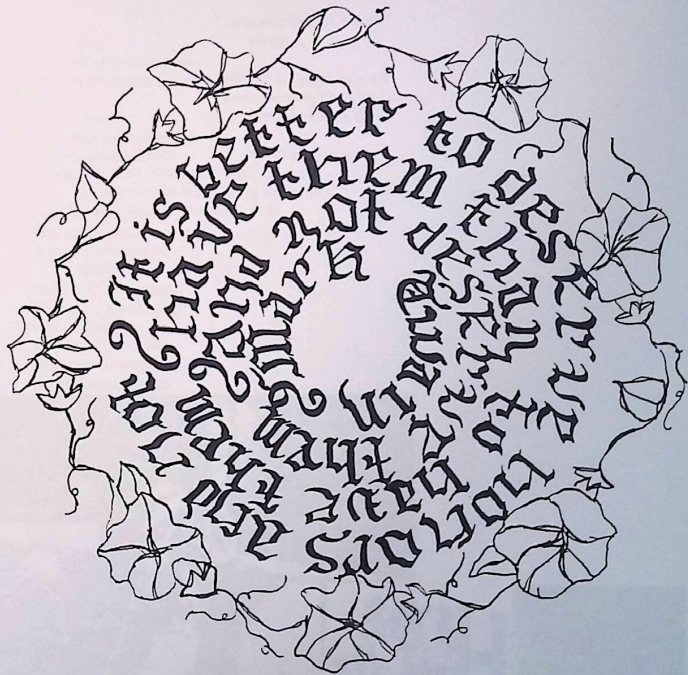 It is better to deserve honors and not
Have them than to have them
And not deserve them
Mark Twain